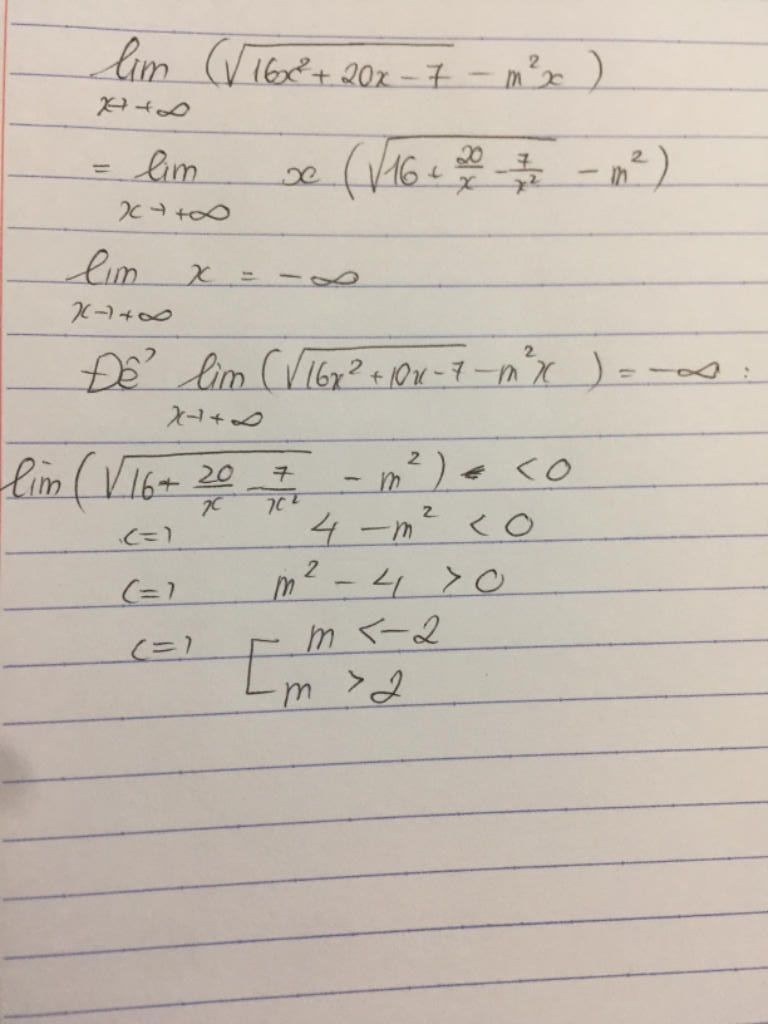 lim (√16x² + 20x - 7 - m²x )
x→+∞
= lim x (√16 + 20/x - 7/x² - m²)
x→+∞
lim x = -∞
x→+∞
Để lim (√16x² + 10x - 7 - m²x ) = -∞ :
x→+∞
lim (√16 + 20/x - 7/x² - m²) < 0
<=> 4 - m² < 0
<=> m² - 4 > 0
<=> [ m < -2
m > 2